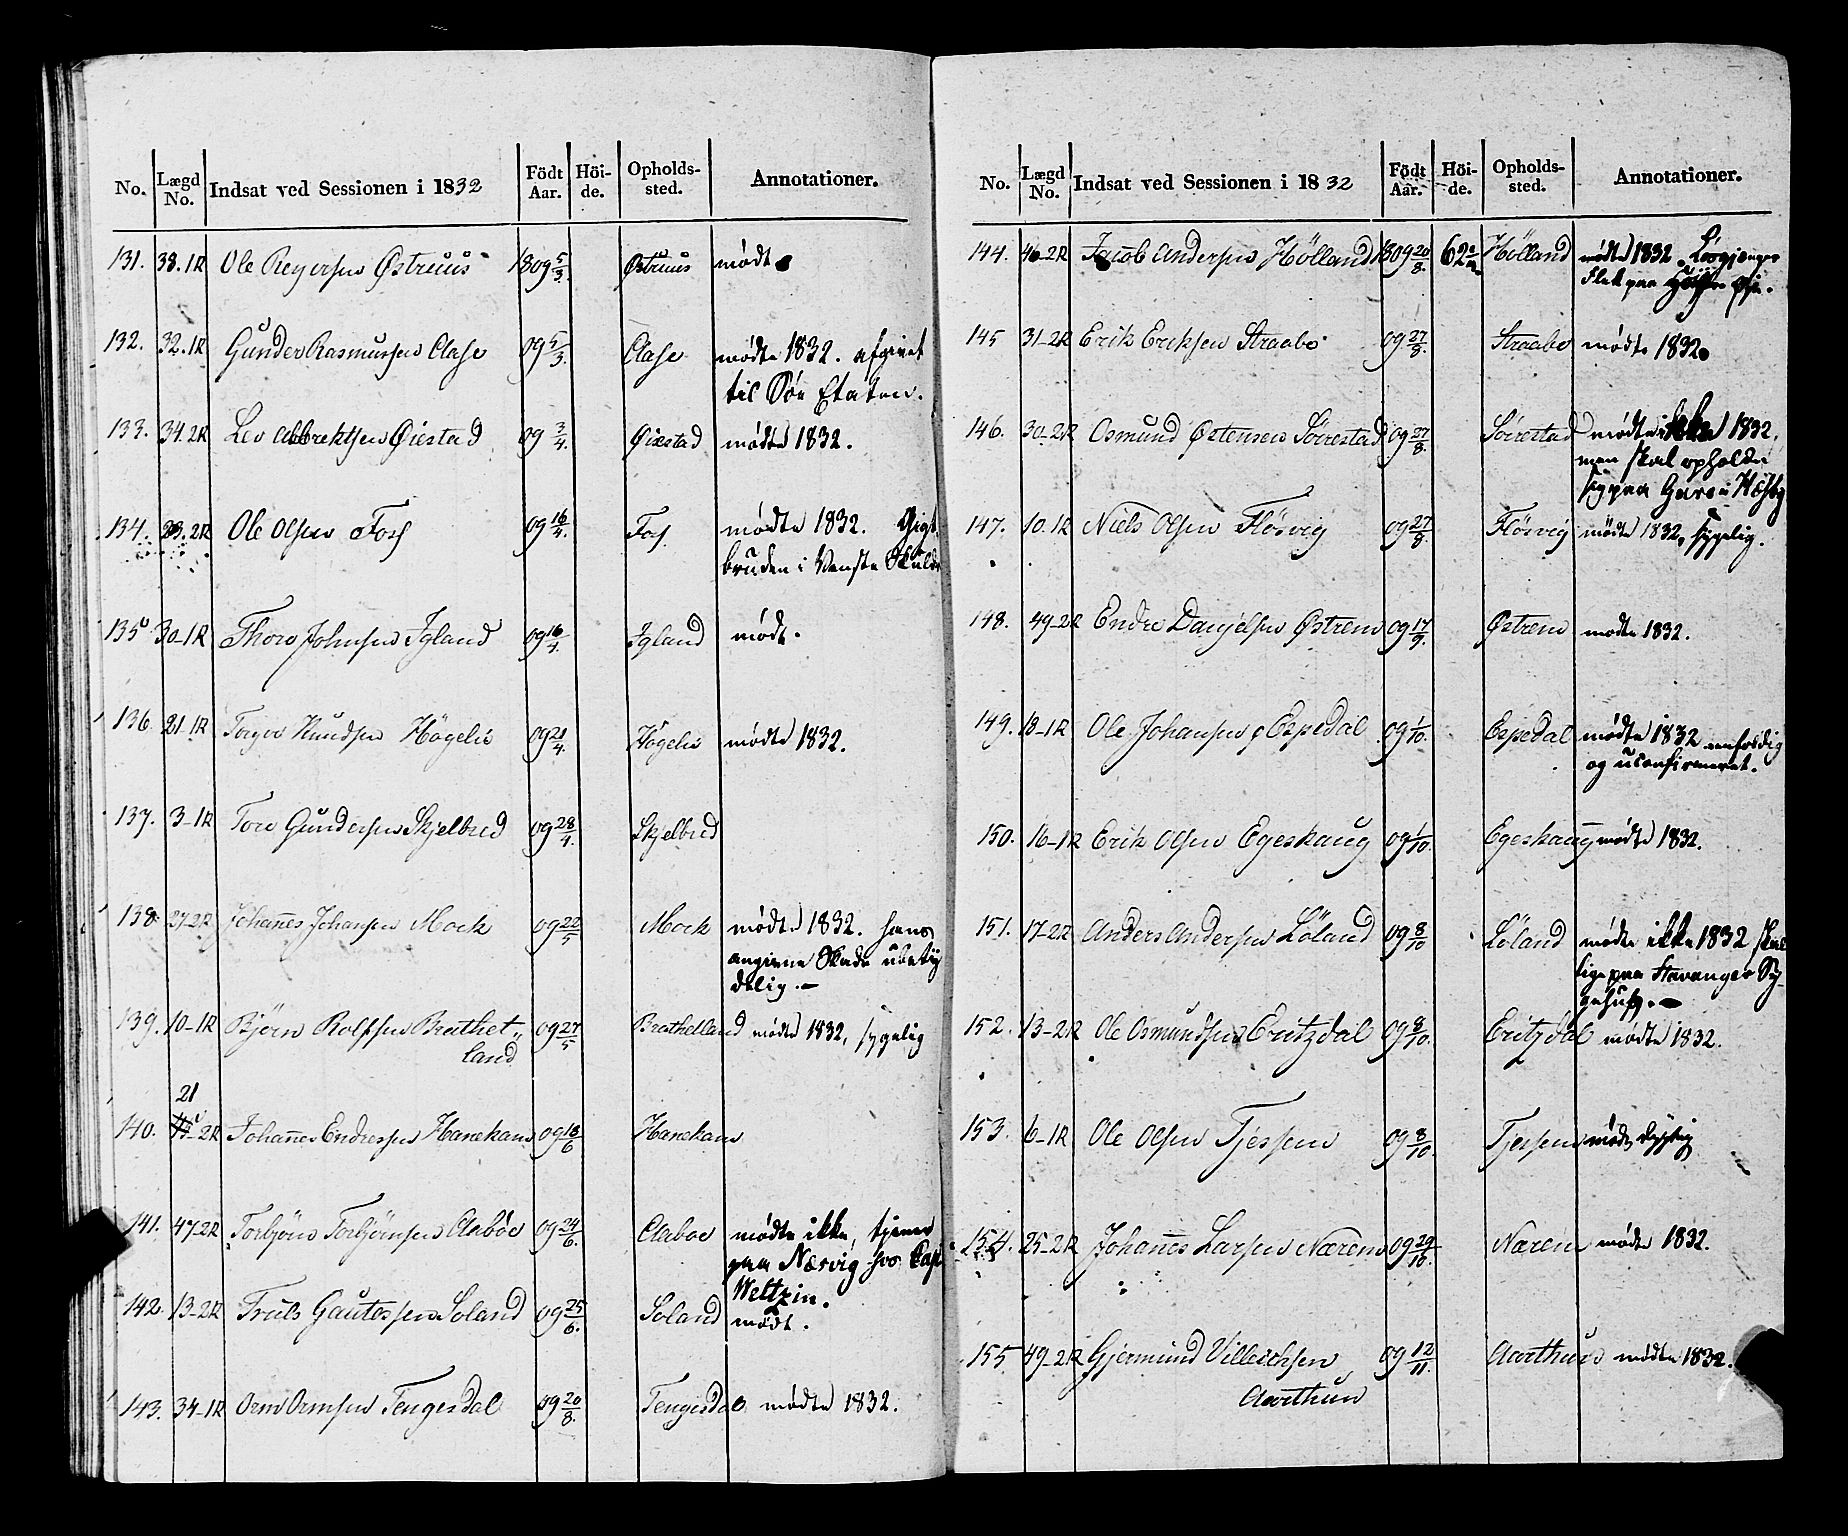 No. Lægd No. Indsat ved Sessionen i 1832 Födt Aar. Höi-de. Opholds-sted. Annotationer.
131. 38.1R Ole Reyersen Østruus 1809 5/3. Østruus mødt
132. 32.1R Gunder Rasmussen Aase 09 5/3. Aase mødte 1832. afgivet
til Søe Etaten.
133. 34.2R Lev Albrektsen Øiestad 09 3/4. Øiestad mødte 1832.
134. 23.2R Ole Olsen Foss 09 16/4. Fos mødte 1832. Gigt
bruden i Venste Skulder
135. 30-1R Thore Johnsen Igland 09 16/4. Igland mødt.
136. 21-1R Torger Knudsen Høgelie 09 21/4. Høgelie mødte 1832.
137. 3-1R Tore Gundersen Skjelbred 09 28/4. Skjelbred
138. 27-2R Johannes Johansen Moek 09 22/5 Moek mødte 1832. hans
angivne Skade ubetÿ
delig.-
139. 10-1R Bjørn Rolfsen Brathet„ 09 27/5 Brathetland mødte 1832, sygelig
land
21
140. 45-2R Johannes Endresen Hanekam 09 18/6 Hanekam
141. 47-2R Torbjøns Torbjørnsen Aabøe 09 24/6. Aaboe mødte ikke, tjener
paa Næsvig hos Capt
Weltzin.
142. 13-2R Truls Gautessen Soland 09 25/6. Soland mødt.
143. 34-1R Orm Ormsen Tengesdal 09 20/8. Tengesdal mødte 1832.
No. Lægd No. Indsat ved Sessionen i 1832 Födt Aar. Höi-de. Opholds-sted. Annotationer.
144. 46-2R Jacob Andersen Hölland 1809 20/8. 62 Hölland mødte 1832. Løsgjænger
Flek paa Øje.
145 31-2R Erik Eriksen Straabe 09 27/8. Straabe mødte 1832
146. 30-2R Osmund Østensen Sörrestad 09 27/8. Sörrestad mødte ikke 1832,
men skal opholde
sig paa Garen i Næsby
147. 10.1R Niels Olsen Flösvig 09 27/8. Flösvig mødte 1832, sygelig.
148. 49-2R Endre Danjelsen Østrem 09 17/9. Østrem mødte 1832.
149. 18-1R Ole Johansen Espedal 09 1/10. Espedal mødte 1832 enfoldig
og uconfirmeret.
150. 16-1R Erik Olsen Egeskaug 09 1/10. Egeskaug mødte 1832.
151. 17-2R Anders Andersen Löland 09 8/10 Löland mødte ikke 1832 skal
lige paa Stavanger Sÿ-
gehuus.-
152. 13-2R Ole Osmundsen Eritzdal 09 8/10. Eritzdal mødte 1832.
153. 6-1R Ole Olsen Tjessem 09 8/10. Tjessem mødt dygtig
154. 25-2R Johannes Larsen Nærem 09 29/10. Nærem mødte 1832.
155 49-2R Gjermund Villechsen 09 12/11. Aarthun mødte 1832.
Aarthun